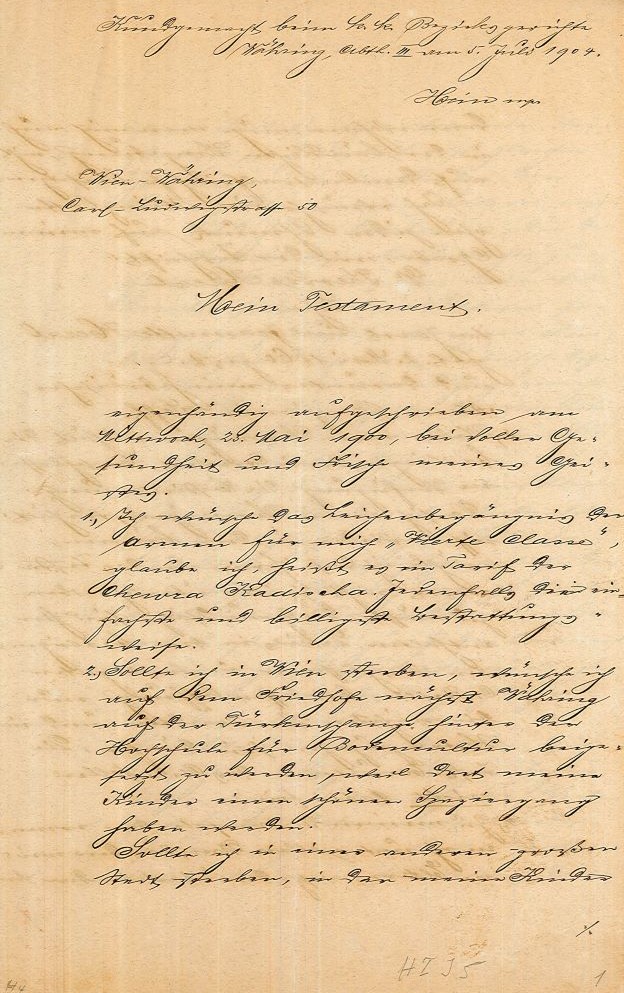 Kundgemacht beim k. k. Bezirksgerichte
Währing, Abth. III am 5. Juli 1904.
Hein mp.
Wien-Währing,
Carl-Ludwigstrasse 50
Mein Testament.
eigenhändig aufgeschrieben am
Mittwoch, 23. Mai 1900, bei voller Ge-
sundheit und Frische meines Gei-
stes.
1., Ich wünsche das Leichenbegängnis der
Armen für mich „Vierte Classe",
glaube ich, heißt es im Tarif der
Chewra Kadischa. Jedenfalls die ein-
fachste und billigste Bestattungs-
weise.
2., Sollte ich in Wien sterben, wünsche ich
auf dem Friedhofe nächst Währing
auf der Türkenschanze hinter der
Hochschule für Bodencultur beige-
setzt zu werden, weil dort meine
Kinder einen schönen Spaziergang
haben werden.
Sollte ich in einer anderen großen
Stadt sterben, in der meine Kinder
./.
1